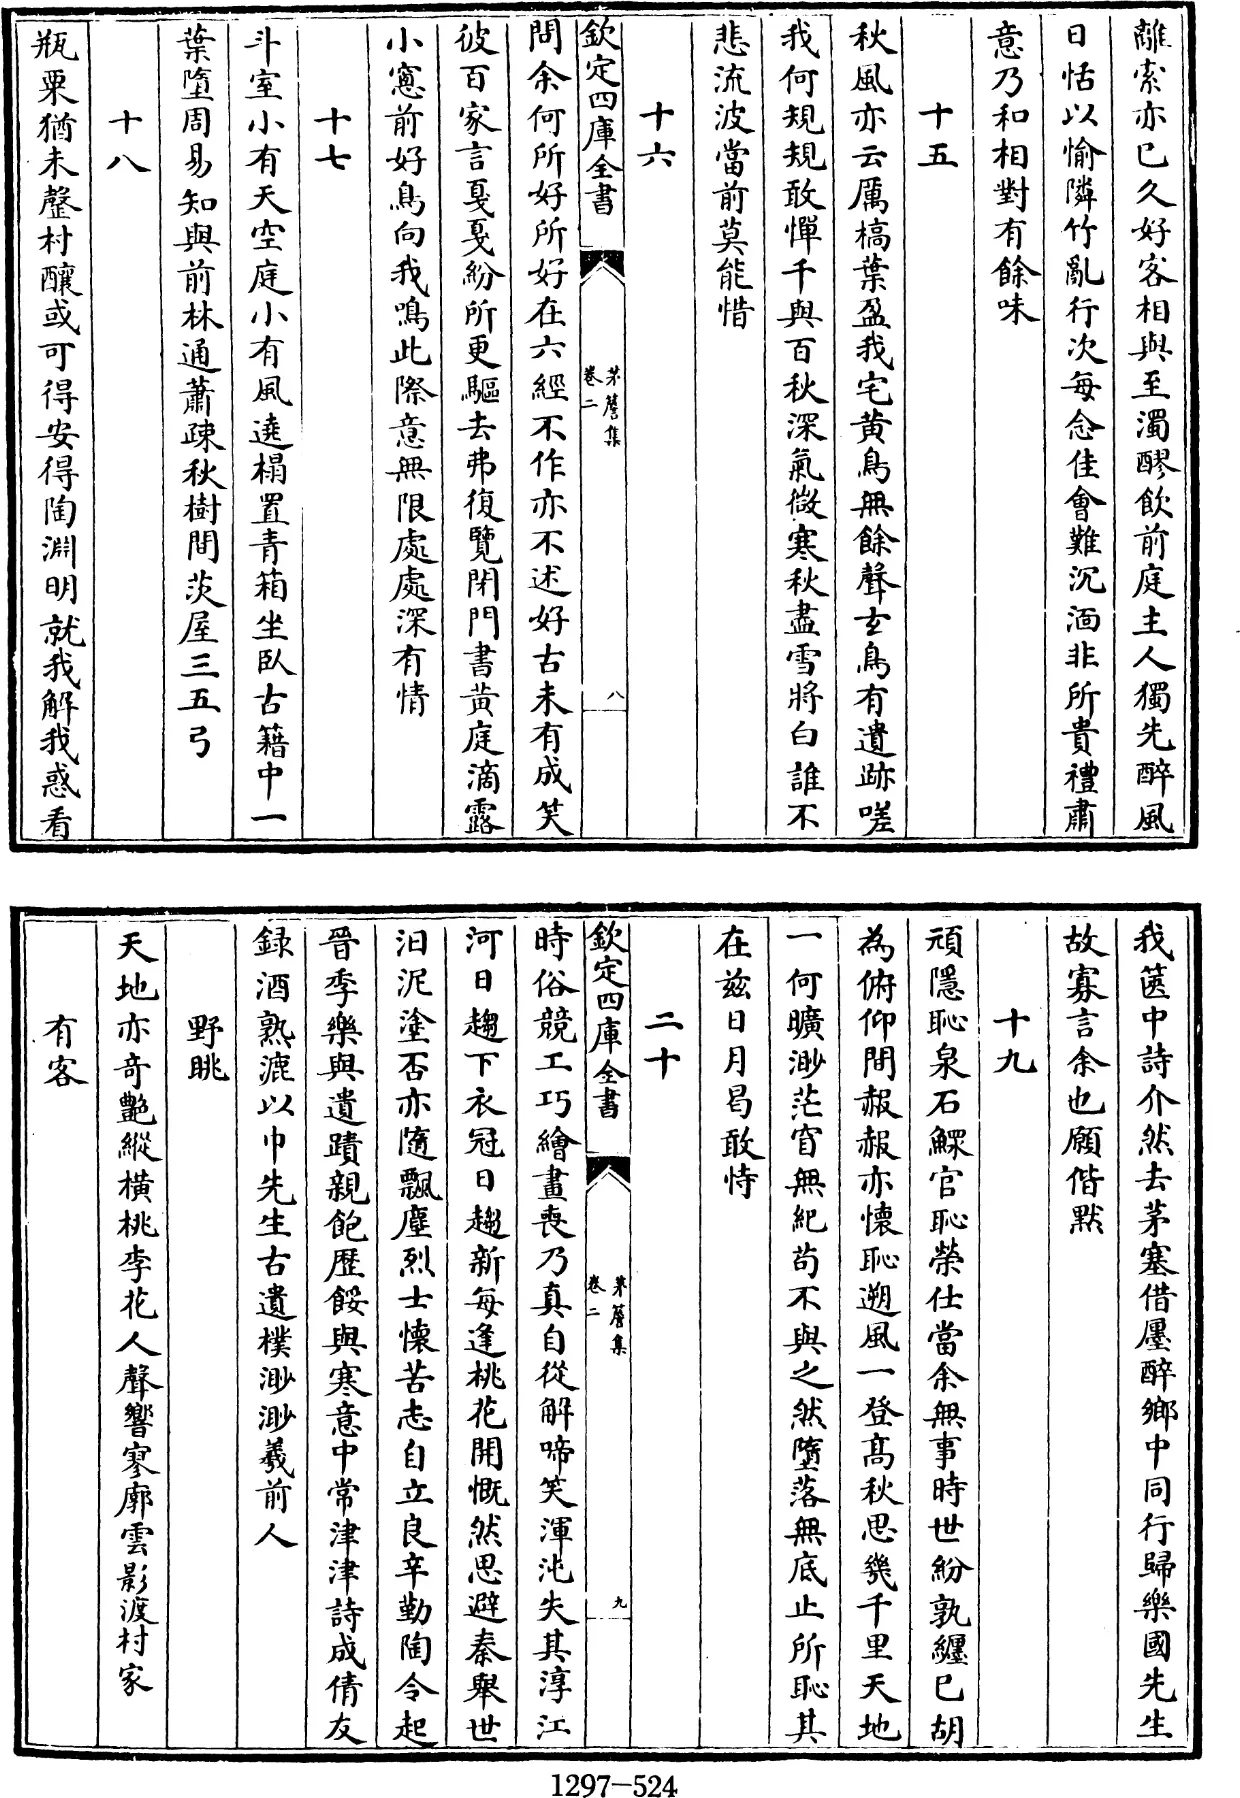 離索亦已久好客相與至濁醪飲前庭主人獨先醉風
日恬以愉隣竹亂行次每念佳會難沉湎非所貴禮肅
意乃和相對有餘味
十五
秋風亦云厲槁葉盈我宅黄鳥無餘聲玄鳥有遺跡嗟
我何規規敢憚千與百秋深氣微寒秋盡雪將白誰不
悲流波當前莫能惜
十六
欽定四庫全書
茅簷集
卷二
八
問余何所好所好在六經不作亦不述好古未有成笑
彼百家言戛戛紛所更驅去弗復覽閉門書黄庭滴露
小窻前好鳥向我鳴此際意無限處處深有情
十七
斗室小有天空庭小有風遶榻置青箱坐臥古籍中一
葉墮周易知與前林通蕭疎秋樹間茨屋三五弓
十八
瓶粟猶未罄村釀或可得安得陶淵明就我解我惑看
我篋中詩介然去茅塞借屨醉鄉中同行歸樂國先生
故寡言余也願偕默
十九
頑隱恥泉石鰥官恥榮仕當余無事時世紛孰纏已胡
為俯仰間赧赧亦懷恥遡風一登髙秋思幾千里天地
一何曠渺茫窅無紀茍不與之然墮落無底止所恥其
在兹日月曷敢恃
二十
欽定四庫全書
茅簷集
卷二
九
時俗競工巧繪畫喪乃真自從解啼笑渾沌失其淳江
河日趨下衣冠日趨新每逢桃花開慨然思避秦舉世
汩泥塗否亦隨飄塵烈士懷苦志自立良辛勤陶令起
晉季樂與遺蹟親飽歴餒與寒意中常津津詩成倩友
録酒熟漉以巾先生古遺樸渺渺羲前人
野眺
天地亦奇艷縱横桃李花人聲響寥廓雲影渡村家
有客
1297—524